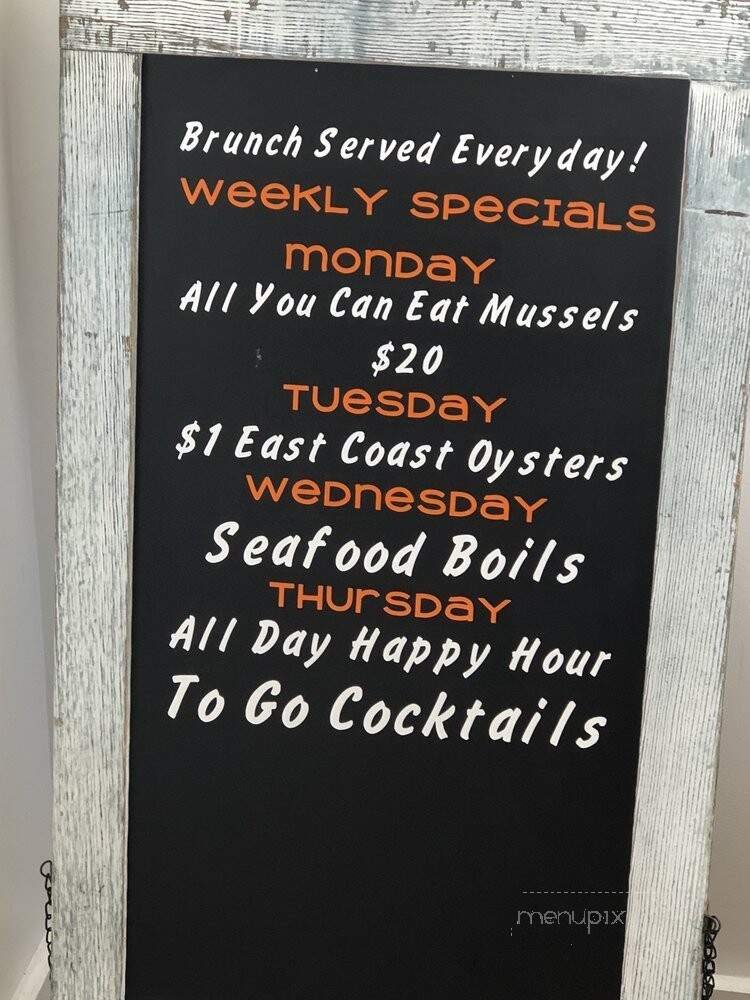 Brunch Served Everyday!
WEEKLY SPECIALS
MONDAY
All You Can Eat Mussels
$20
TUESDAY
$1 East Coast Oysters
WEDNESDAY
Seafood Boils
THURSDAY
All Day Happy Hour
To Go Cocktails
menupix